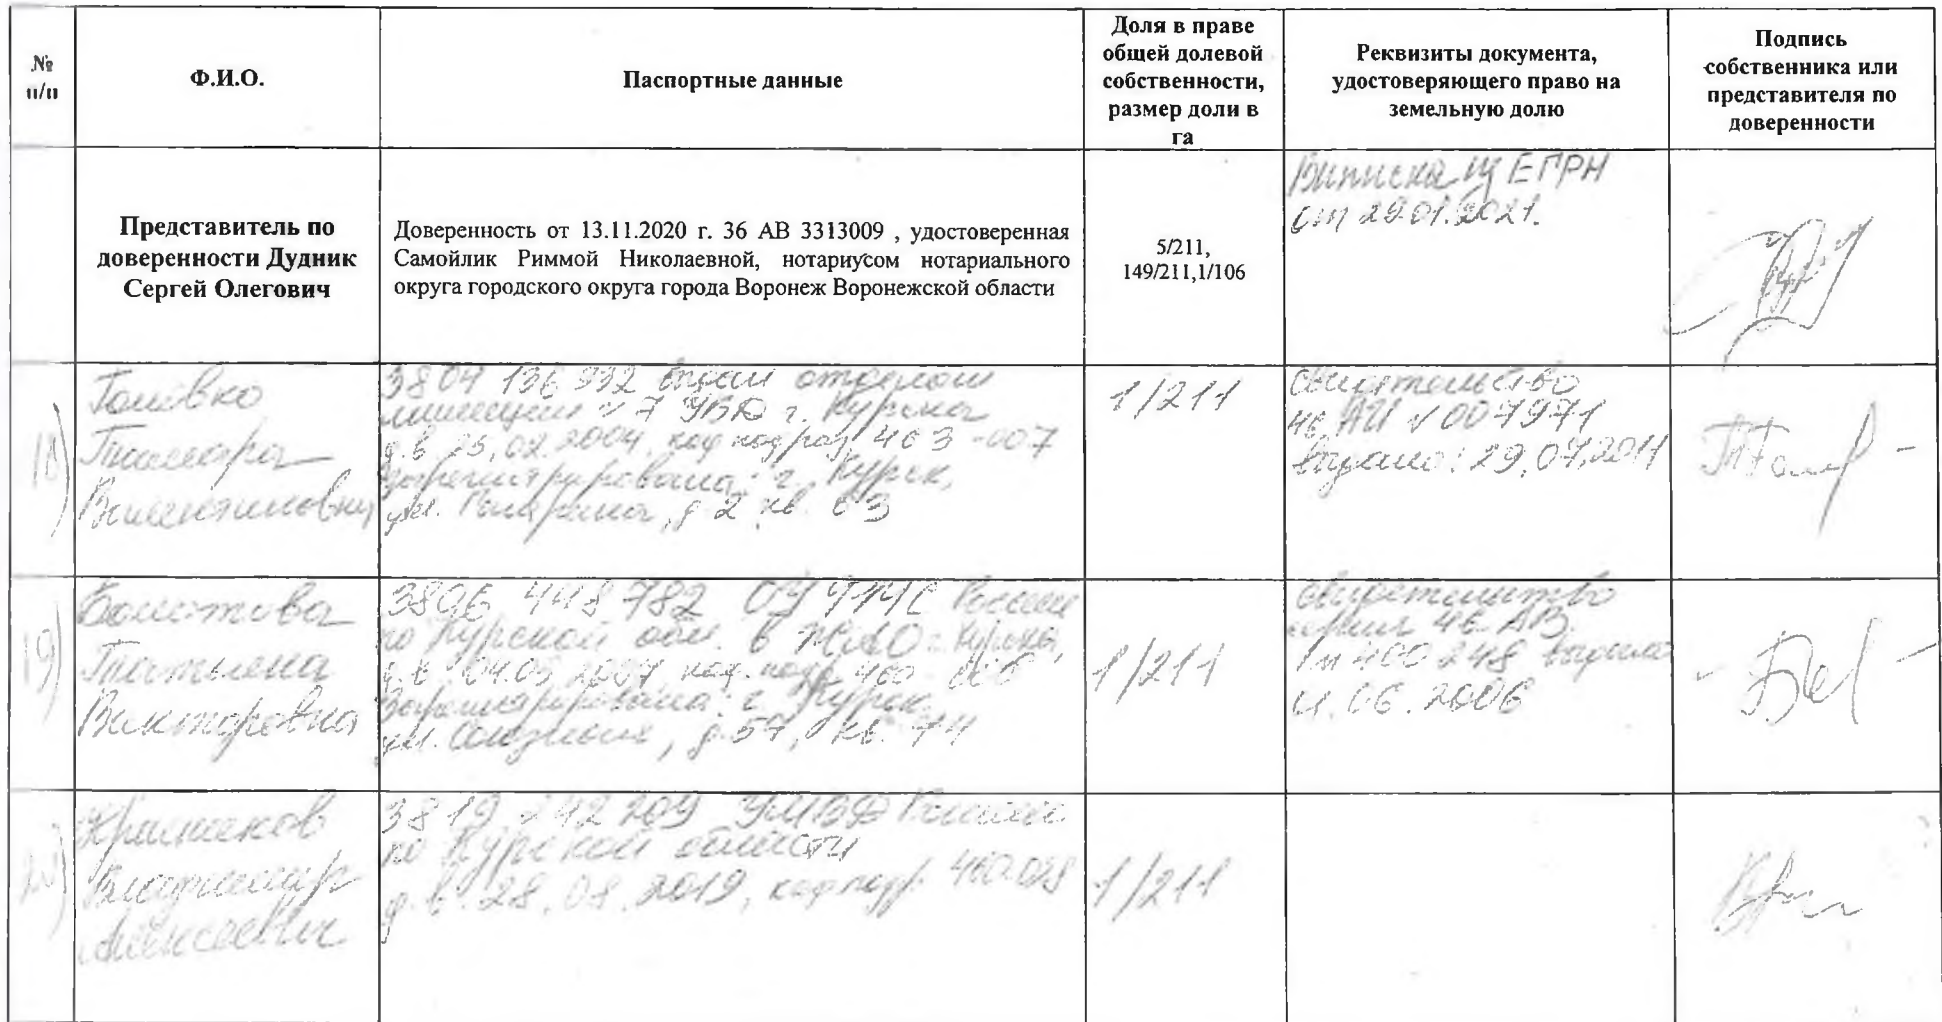 № п/п
Ф.И.О.
Паспортные данные
Доля в праве
общей долевой
собственности,
размер доли в
га
Реквизиты документа,
удостоверяющего право на
земельную долю
Подпись
собственника или
представителя по
доверенности
Представитель по
доверенности Дудник
Сергей Олегович
Доверенность от 13.11.2020 г. 36 АВ 3313009 , удостоверенная
Самойлик Риммой Николаевной, нотариусом нотариального
округа городского округа города Воронеж Воронежской области
5/211,
149/211,1/106
Выписка из ЕГРН
от 29.01.2021.
18)
Тамара
3804 136 992 выдан отделом
милиции №7 УВД г. Курска
д.в. 25.02.2004, код подраз. 463-007
зарегистрирована: г. Курск,
ул. д.2 кв. 63
1/211
свидетельство
46 АИ № 007971
выдано: 29.07.2011
19)
Болотова
Татьяна
Викторовна
3806 448 782 ОУФМС России
по Курской обл. в г. Курска,
д.в. 04.05.2007 код. подр. 460-
Зарегистрирована: г. Курск
ул. Союзная, д.57, кв. 74
1/211
свидетельство
серия 46 АВ
№ 400248 выдано
06.2006
20)
Владимир
Алексеевич
3819 242 209 УМВД России
по Курской области
д.в. 28.08.2019, код подр. 460-028
1/211